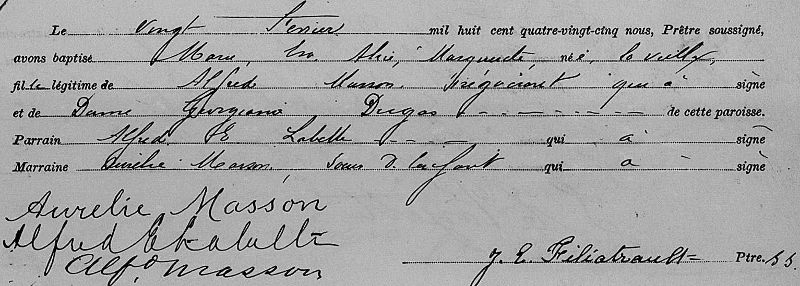 Le vingt Février mil huit cent quatre-vingt-cinq nous, Prêtre soussigné,
avons baptisé Marie, Alice, Marguerite, née la veille,
fille légitime de Alfred Masson Négociant qui a signé
et de Dame Georgiana Dugas - - - - - - de cette paroisse.
Parrain Alfred E Labelle - - - - qui a signé
Marraine Aurélie Masson, Soeur de qui a signé
Aurelie Masson
Alfred E Labelle
Alf Masson
J. E. Filiatrault Ptre. S.S.